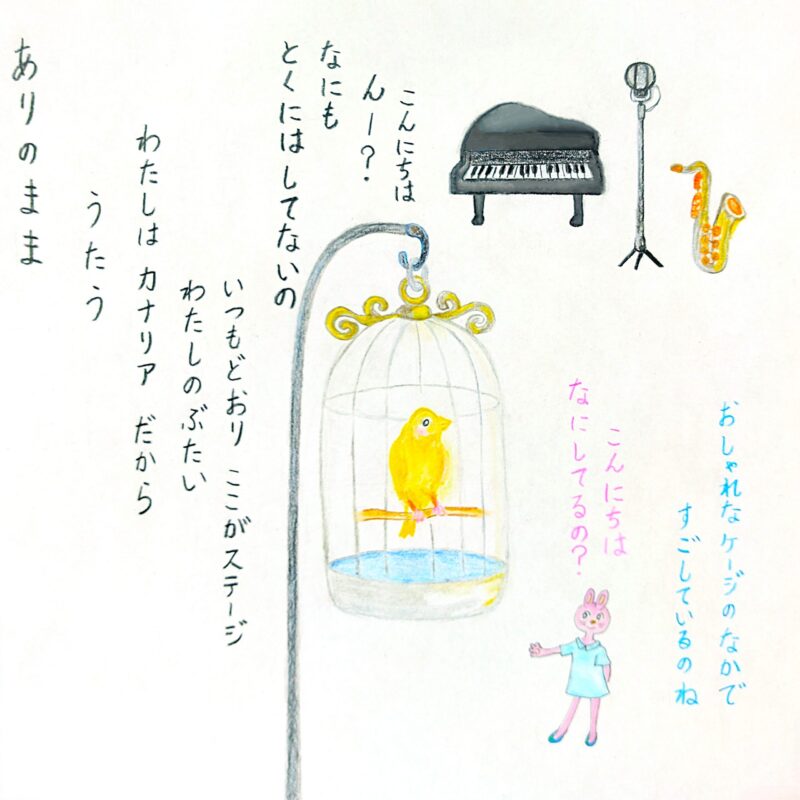 おしゃれなケージのなかで
すごしているのね
こんにちは
なにしてるの?
こんにちは
んー?
なにも
とくにはしてないの
いつもどおり ここがステージ
わたしのぶたい
わたしは カナリア だから
うたう
ありのまま